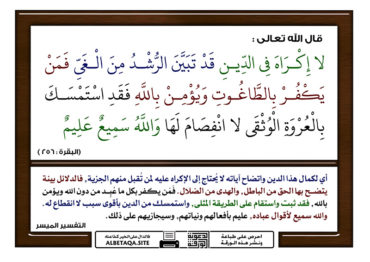 قال الله تعالى :
لا إِكْرَاهَ فِي الدِّينِ قَدْ تَبَيَّنَ الرُّشْدُ مِنَ الْغَيِّ فَمَنْ
يَكْفُرْ بِالطَّاغُوتِ وَيُؤْمِنْ بِاللَّهِ فَقَدِ اسْتَمْسَكَ
بِالْعُرْوَةِ الْوُثْقَى لا انْفِصَامَ لَهَا وَاللَّهُ سَمِيعٌ عَلِيمٌ
(البقرة : ٢٥٦)
أي لكمال هذا الدين واتضاح آياته لا يُحتاج إلى الإكراه عليه لمن تُقبل منهم الجزية, فالدلائل بينة
يتضح بها الحق من الباطل, والهدى من الضلال. فمَن يكفر بكل ما عُبِد من دون الله ويؤمن
بالله, فقد ثبت واستقام على الطريقة المثلى, واستمسك من الدين بأقوى سبب لا انقطاع له.
والله سميع لأقوال عباده, عليم بأفعالهم ونياتهم, وسيجازيهم على ذلك.
التفسير الميسر
احرص على طباعة
ونشر هذه الورقة
ALBETAQA.SITE